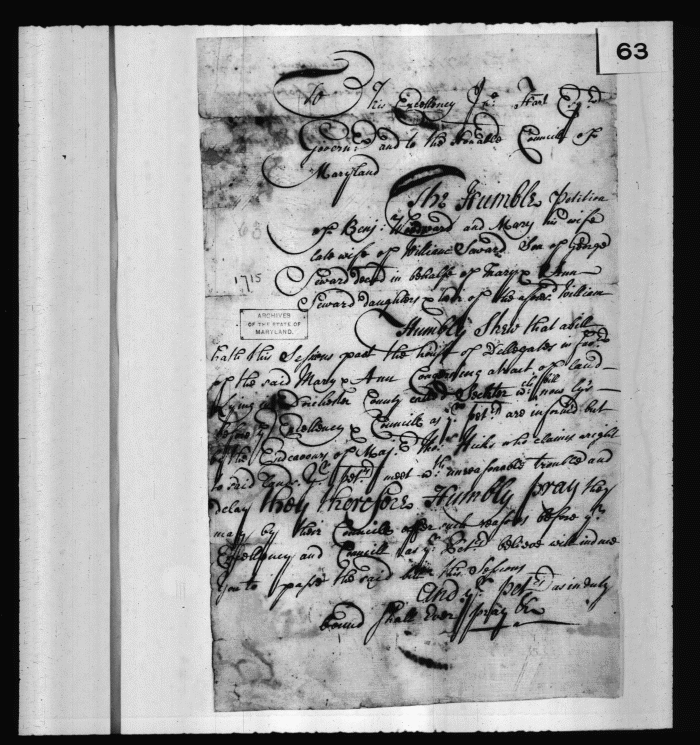 63
To His Excellency Jno Hart Esqr
Governr and to the Honable Councill of
Maryland
The Humble Petition
of Benj: Woodward and Mary his wife
late wife of William Seward Son of George
Seward decd in behalfe of Mary & Ann
Seward daughters & heirs of the aforesd William
63
1715
ARCHIVES
OF THE STATE OF
MARYLAND.
Humbly Shew that a bill
hath this Sessions past the house of Dellegates in favor
of the said Mary & Ann Concerning a tract of land
Lying in Dorchester County called Sector wch bill now lyes
before yr Excellency & Councill as yr Petrs are informed but
by the Endeavours of Maj. Tho: Hicks who claims a right
to said Land yr Petrs meet wth unreasonable trouble and
delay they therefore Humbly pray they
may by their Councill offer such reasons before yr
Excellency and Councill as yr Petrs believe will induce
you to passe the said bill this Sessions
And yr Petrs as in duty
bound shall Ever pray &c